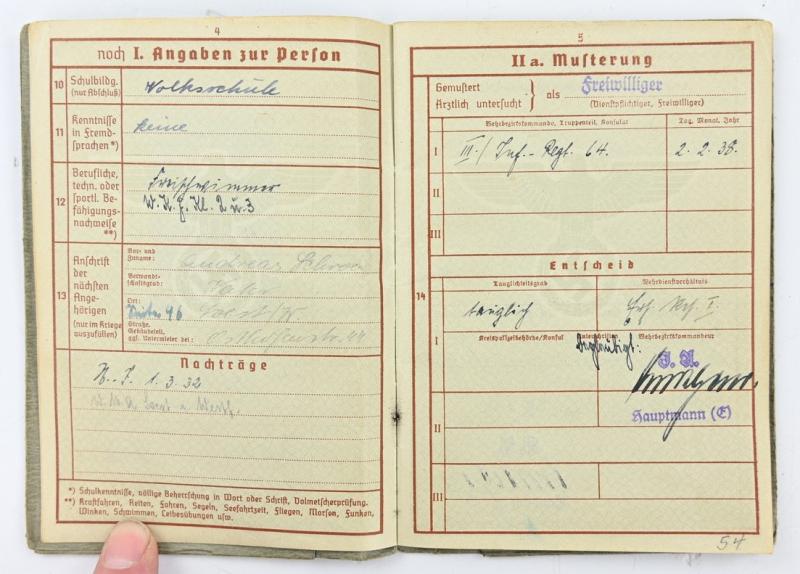 4
noch I. Angaben zur Person
10 Schulbildg. (nur Abschluß) Volksschule
11 Kenntnisse in Fremdsprachen *) keine
12 Berufliche, techn. oder sportl. Befähigungsnachweise **)
Freischwimmer
W. H. J. Kl. 2 u. 3
13 Anschrift der nächsten Angehörigen (nur im Kriege auszufüllen)
Vor- und Zuname: Andreas
Verwandtschaftsgrad: Vater
Ort: Soest/W
Straße, Gebäudeteil, ggf. Untermieter bei:
Nachträge
1. 3. 32
*) Schulkenntnisse, völlige Beherrschung in Wort oder Schrift, Dolmetscherprüfung.
**) Kraftfahren, Reiten, Fahren, Segeln, Seefahrtzeit, Fliegen, Morsen, Funken,
Winken, Schwimmen, Leibesübungen usw.
5
II a. Musterung
Gemustert
Ärztlich untersucht } als Freiwilliger
(Dienstpflichtiger, Freiwilliger)
Wehrbezirkskommando, Truppenteil, Konsulat Tag, Monat, Jahr
I III./Inf.-Regt. 64. 2. 2. 38.
II
III
14
Entscheid
Tauglichkeitsgrad Wehrdienstverhältnis
tauglich Ers. Res. I.
I Kreispolizeibehörde/Konsul Unterschriften Wehrbezirkskommandeur
Beglaubigt:
J. A.
Hauptmann (E)
II
III
54